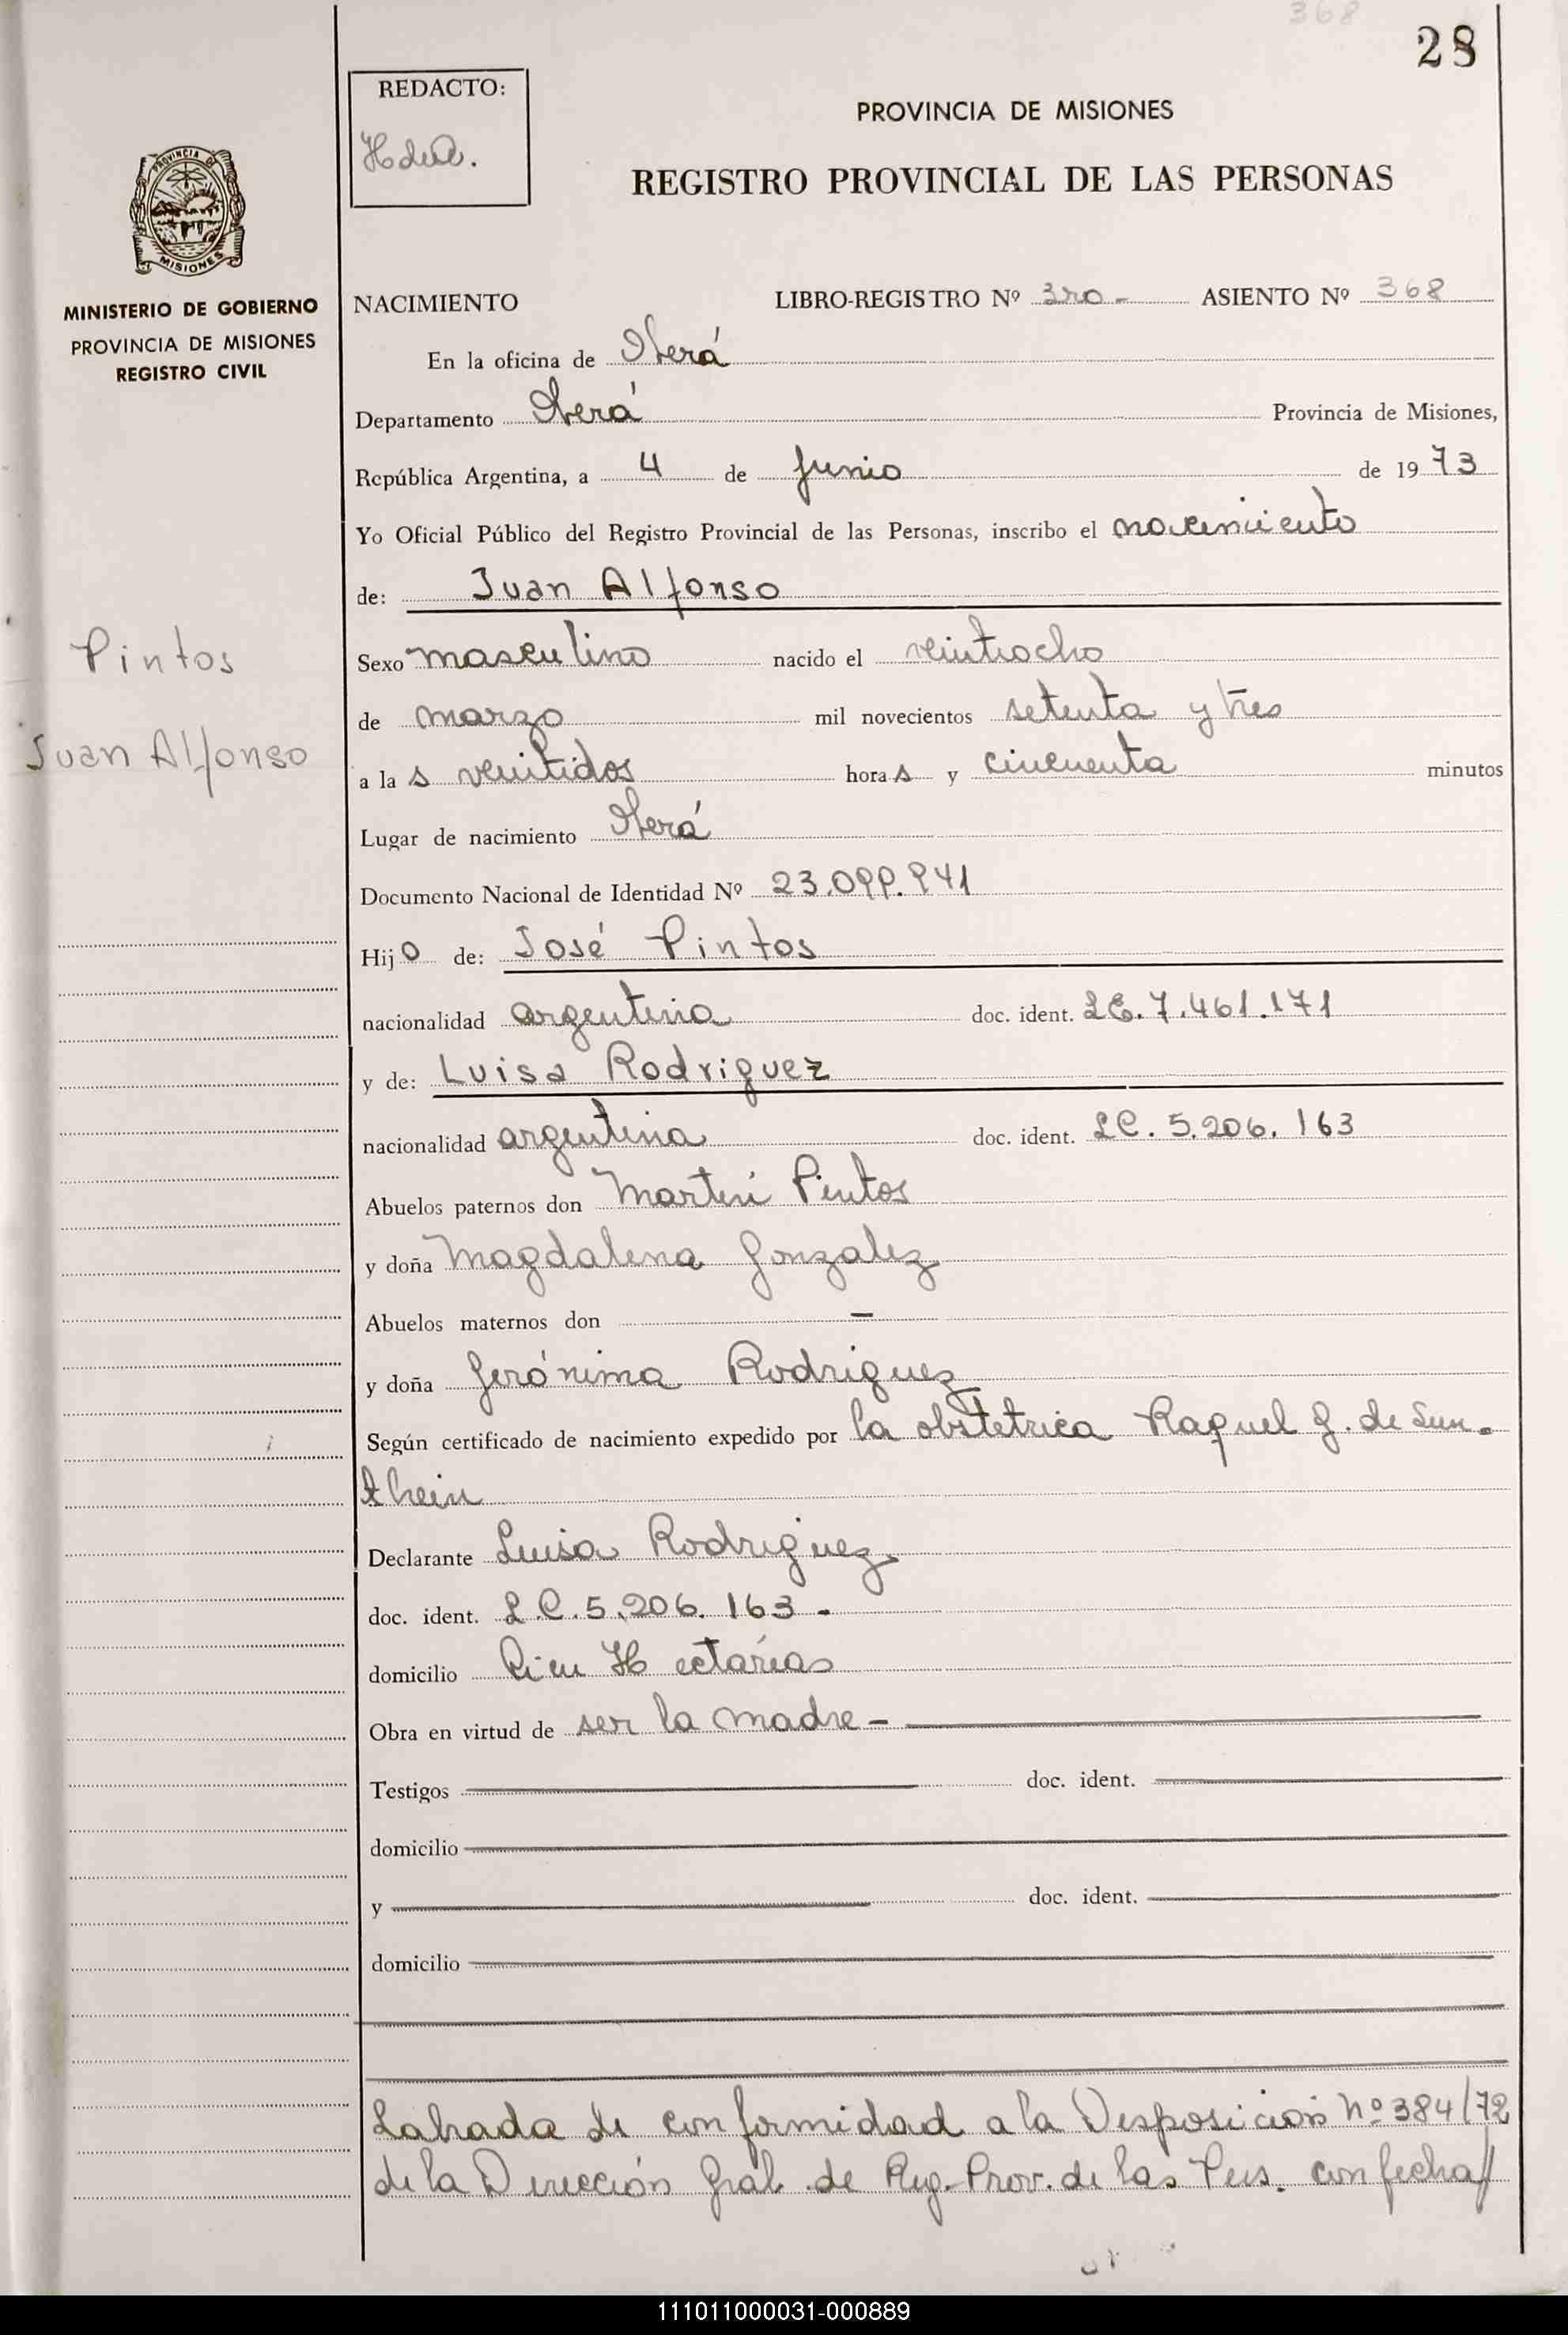 368
28
REDACTO:
PROVINCIA DE
MISIONES
MINISTERIO DE GOBIERNO
PROVINCIA DE MISIONES
REGISTRO CIVIL
PROVINCIA DE MISIONES
REGISTRO PROVINCIAL DE LAS PERSONAS
NACIMIENTO LIBRO-REGISTRO Nº 3ro - ASIENTO Nº 368
En la oficina de Oberá
Departamento Oberá Provincia de Misiones,
República Argentina, a 4 de Junio de 1973
Yo Oficial Público del Registro Provincial de las Personas, inscribo el nacimiento
de: Juan Alfonso
Pintos
Juan Alfonso
Sexo masculino nacido el veintiocho
de marzo mil novecientos setenta y tres
a las veintidos horas y cincuenta minutos
Lugar de nacimiento Oberá
Documento Nacional de Identidad Nº 23.099.941
Hijo de: José Pintos
nacionalidad argentina doc. ident. LE. 7.461.171
y de: Luisa Rodriguez
nacionalidad argentina doc. ident. LC. 5.206.163
Abuelos paternos don Martín Pintos
y doña Magdalena Gonzalez
Abuelos maternos don -
y doña Jerónima Rodriguez
Según certificado de nacimiento expedido por la obstetrica Raquel G. de Sun-
thein
Declarante Luisa Rodriguez
doc. ident. L.C. 5.206.163-
domicilio Cien Hectarias
Obra en virtud de ser la madre -
Testigos doc. ident.
domicilio
y doc. ident.
domicilio
Labrada de conformidad a la Disposición nº 384/72
de la Dirección Gral. de Reg. Prov. de las Pers. con fecha//
111011000031-000889